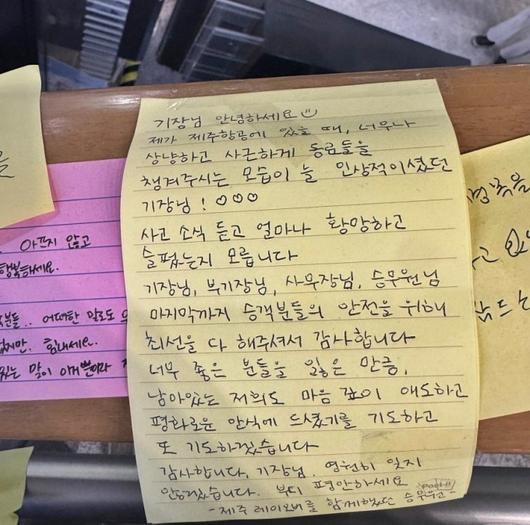 기장님 안녕하세요
제가 제주항공에 있을 때, 너무나
상냥하고 사근하게 동료들을
챙겨주시는 모습이 늘 인상적이셨던
기장님! ♡♡♡
사고 소식 듣고 얼마나 황망하고
슬펐는지 모릅니다
기장님, 부기장님, 사무장님, 승무원님
마지막까지 승객분들의 안전을 위해
최선을 다 해주셔서 감사합니다
너무 좋은 분들을 잃은 만큼,
남아있는 저희도 마음 깊이 애도하고
평화로운 안식에 드셨기를 기도하고
또 기도하겠습니다
감사합니다, 기장님. 영원히 잊지
않겠습니다. 부디 평안하세요
-제주 레이오버를 함께했던 승무원-
아프지 않고
행복하세요.
분들.. 어떠한 말로도
힘내세요.
있는 말이 이것뿐이라